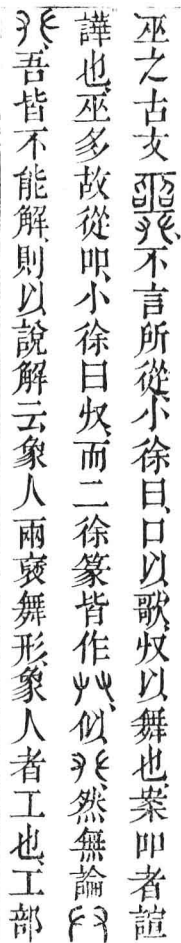 巫之古文不言所從小徐曰口以歌収以舞也案吅者諠
譁也巫多故從吅小徐曰収而二徐篆皆作似然無論
吾皆不能解則以說解云象人兩褎舞形象人者工也工部